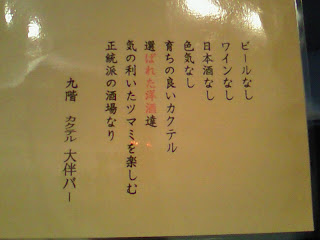 ビールなし
ワインなし
日本酒なし
色気なし
育ちの良いカクテル
選ばれた洋酒達
気の利いたツマミを楽しむ
正統派の酒場なり
九階 カクテル 大伴バー